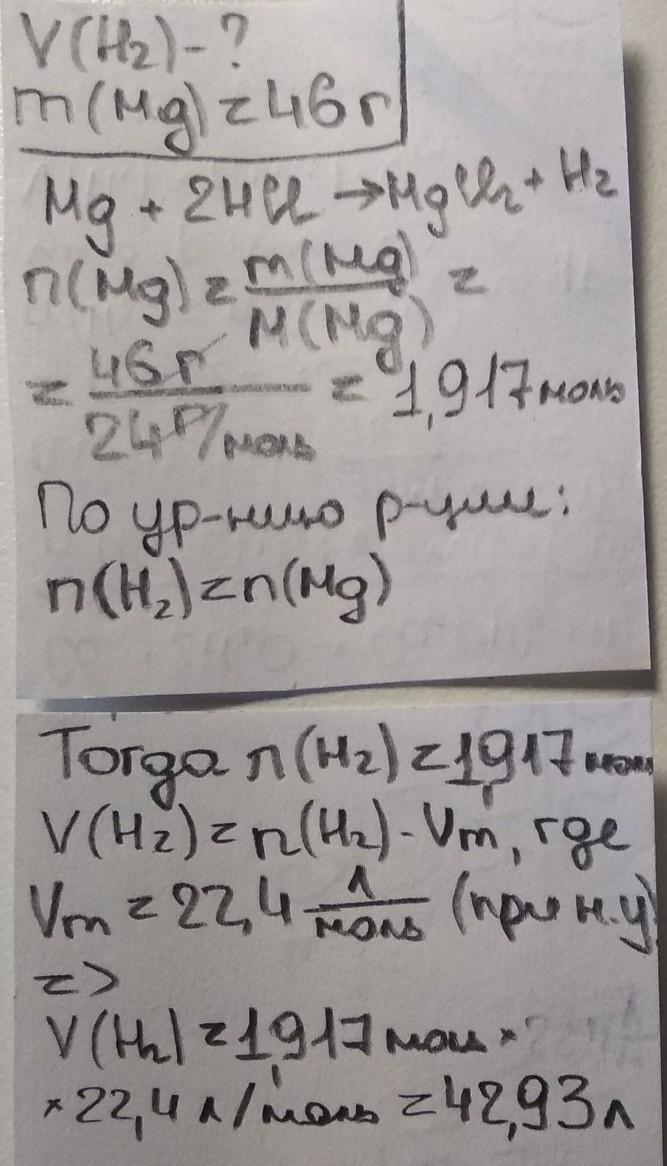 V(H₂)-?
m(Mg)=46г
Mg + 2HCl →MgCl₂+ H₂
n(Mg)=m(Mg)/M(Mg) =
= 46г/24г/моль = 1,917моль
По ур-нию р-ции:
n(H₂)=n(Mg)
Тогда n(H₂)=1,917моль
V(H₂)=n(H₂)·Vm, где
Vm=22,4 л/моль (при н.у)
=>
V(H₂)=1,917моль×
×22,4 л/моль =42,93л